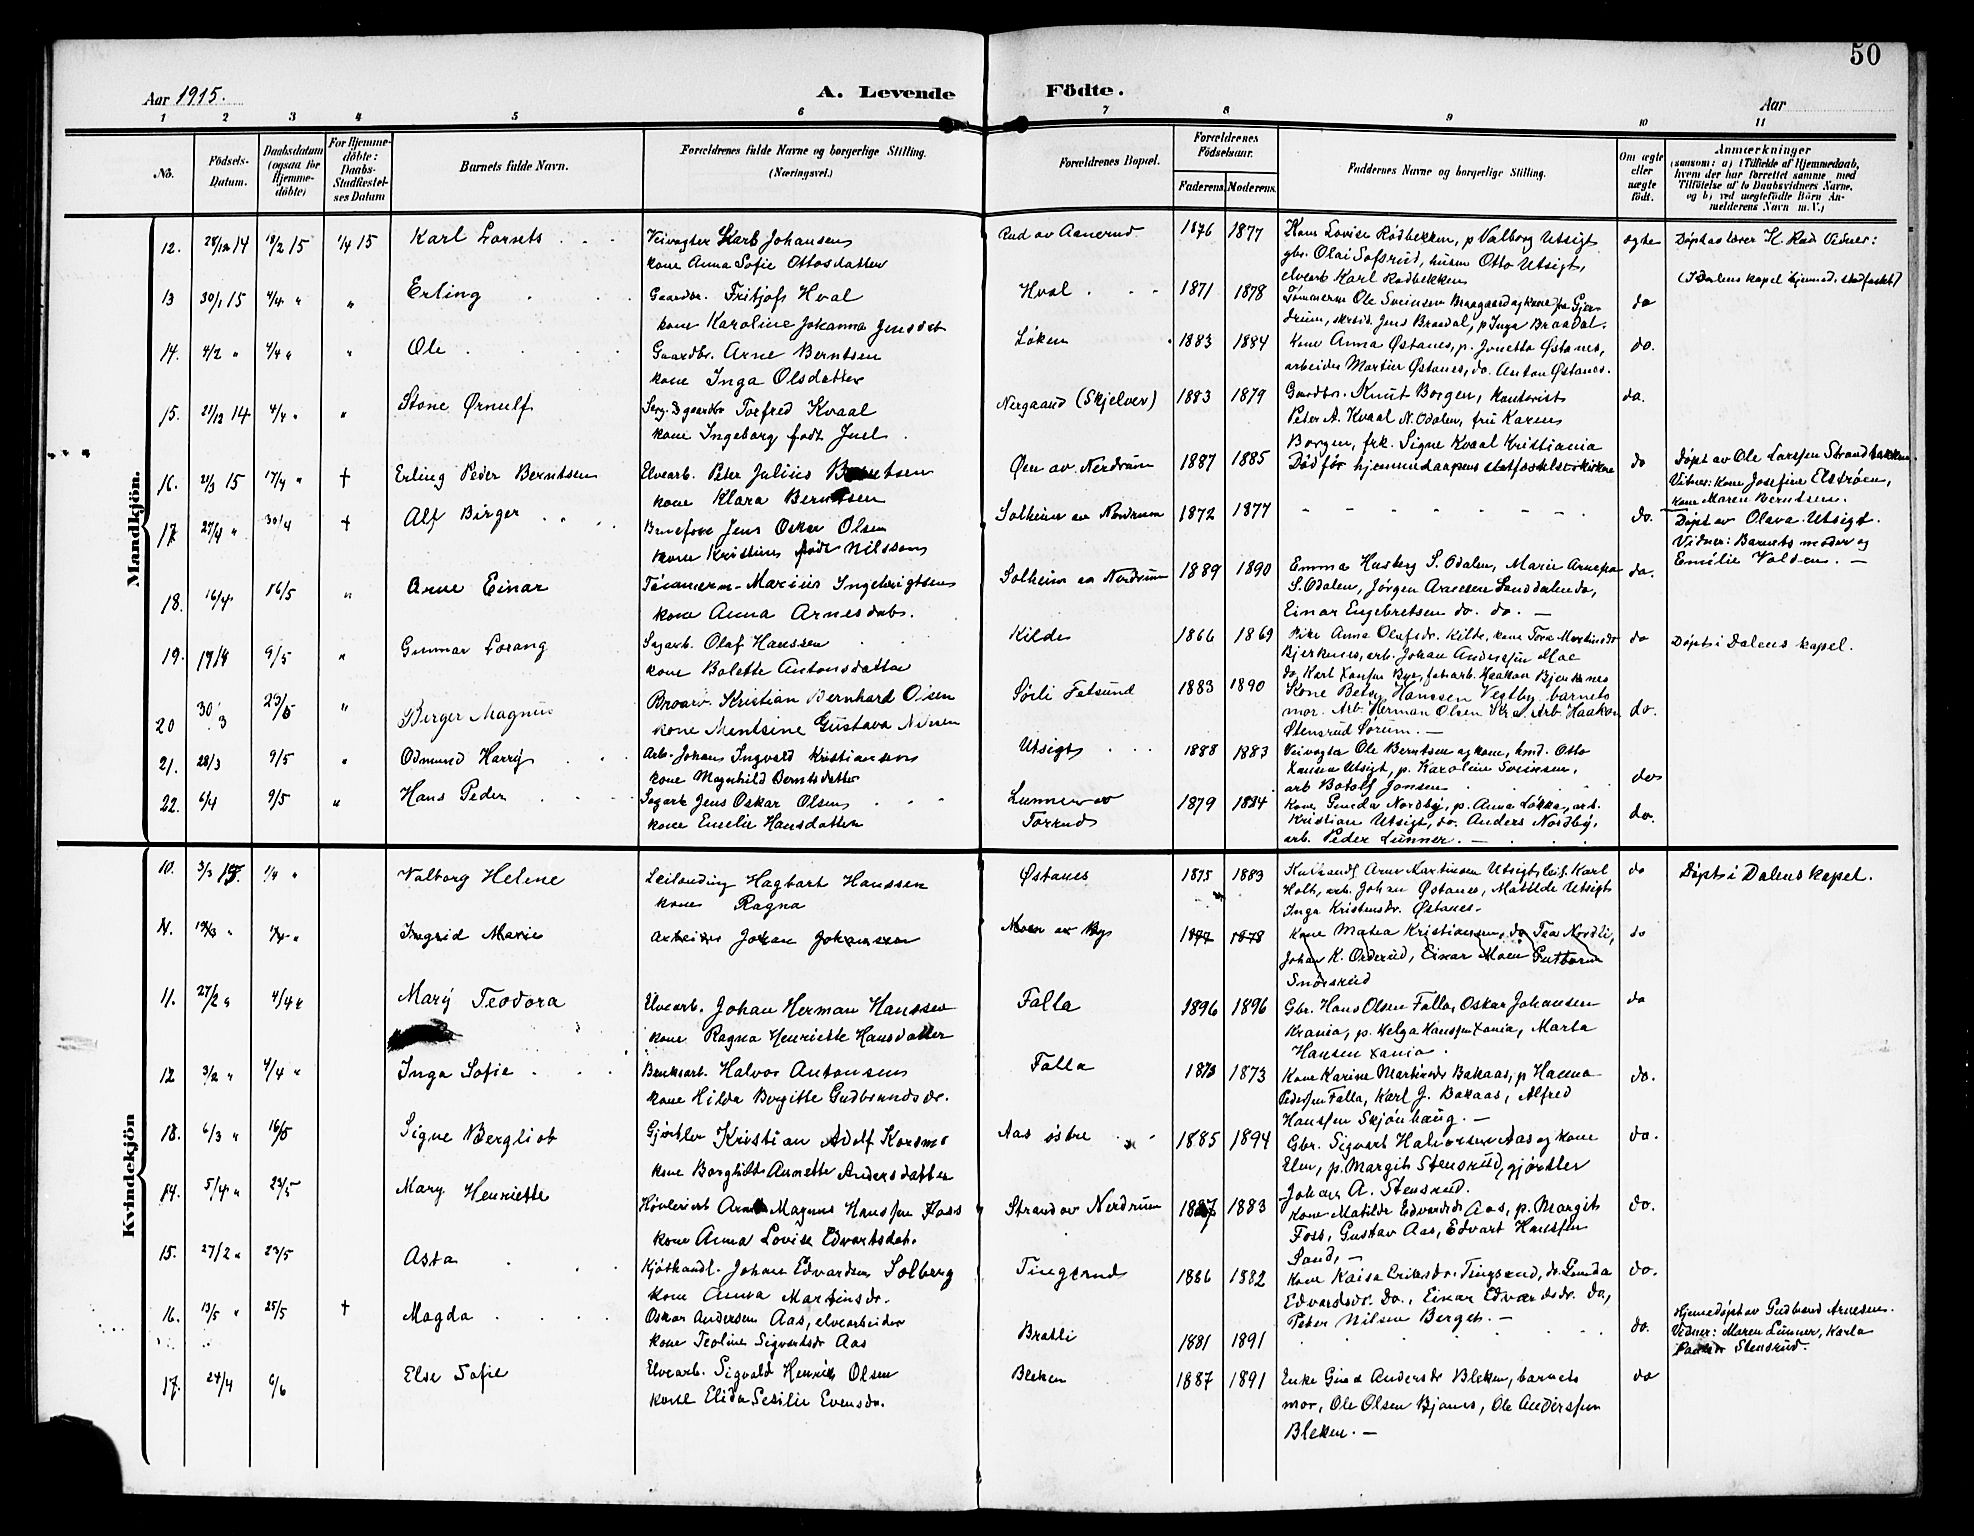 50
Aar 1915.
A. Levende Födte.
Aar
1 2 3 4 5 6 7 8 9 10 11
No.
Födsels-Datum.
Daabsdatum (ogsaa for Hjemme-döbte)
For Hjemme-döbte: Daabs-Stadfæstel-ses Datum
Barnets fulde Navn.
Forældrenes fulde Navne og borgerlige Stilling.
(Næringsvei.)
Forældrenes Bopæl.
Forældrenes Födselsaar.
Faderens. Moderens.
Faddernes Navne og borgerlige Stilling.
Om ægte eller uægte födt.
Anmærkninger
(saasom: a) i Tilfælde af Hjemmedaab,
hvem der har forrettet samme, med
Tilföielse af to Daabsvidners Navne,
og b) ved uægtefödte Börn An-
melderens Navn m. V.)
Mandkjön.
12. 28/12 14 18/2 15 1/4 15 Karl Lornts Veivogter Karl Johansen Rud av Aanerud 1876 1877 Kone Lovise Rødbekken, p Valborg Utsigt ægte Døpt av lærer K. Rud Vidner:
kone Anna Sofie Ottosdatter gbr. Olai Sofsrud, husm Otto Utsigt,
elvearb Karl Rødbekken (I Dalens kapel hjemmed. stadfæstet)
13 30/1 15 4/4 " " Erling Gaardbr. Fritjof Hval Hval 1871 1878 Tømmerm Ole Sveinsen Braagaard og kone fra Gjer- do
kone Karoline Johanna Jensdat drum, skrædd. Jens Braadal, p Inga Braadal.
14. 4/2 " 4/4 " " Ole Gaardbr. Arne Berntsen Løken 1883 1884 Kone Anna Østanes, p. Jonetta Østanes, do.
kone Inga Olsdatter arbeider Martin Østanes, do. Anton Østanes.
15. 21/12 14 4/4 " " Stone Ørnulf Serg. & gaardbr Torfred Kvaal Nergaard (Skjelver) 1883 1879 Gaardbr. Knut Borgen, kontorist do.
kone Ingeborg født Juel Peter A. Kvaal N. Odalen, fru Karen
Borgen, frk. Signe Kvaal Kristiania
16. 21/3 15 17/4 " † Erling Peder Berntsen Elvearb. Peter Julius Berntsen Øen av Nerdrum 1887 1885 Død før hjemmedaapens stadfæstelse i kirken do Døpt av Ole Larssen Strandbakken
kone Klara Berntsen Vitner: kone Josefine Elstrøen,
kone Maren Berntsen.
17. 27/4 " 30/4 † Alf Birger Jens Oskar Olsen Solheim av Nerdrum 1872 1877 do. Døpt av Olava Utsigt.
kone Kristine født Nilsson Vidner: Barnets moder og
Emilie Volden.
18. 16/4 16/5 " Arne Einar Tømmerm. Marius Ingebrigtsen Solheim av Nerdrum 1889 1890 Emma Husberg S. Odalen, Marie do.
kone Anna Arnesdat. S. Odalen, Jørgen Arnesen Sanddalen do,
Einar Engebretsen do. do.
19. 17/4 9/5 " Gunnar Lorang Sagarb. Olaf Hanssen Kilde 1866 1869 Pike Anna Olafsdr. Kilde, kone Tora Martinsdr do Døpt i Dalens kapel.
kone Bolette Antonsdatter Bjerknes, arb. Johan Anderssen Moe
do Karl Hansen Bye, fabarb. Haakon Bjerknes
20 30/3 23/5 " Berger Magnus Kristian Bernhard Olsen Sørli Fetsund 1883 1890 Kone Betsy Hanssen Vestby, barnets do.
kone Mentsine Gustava mor. Arb Herman Olsen Kra. Arb Haakon
Stensrud Sørum.
21. 28/3 9/5 " Odmund Harry Arb. Johan Ingvald Kristiansen Utsigt 1888 1883 Veivogter Ole Berntsen og kone, hmd. Otto
kone Magnhild Berntsdatter Hansen Utsigt, p. Karoline Sveinsen, do
arb Botolf Jonsen
22. 6/4 9/5 " Hans Peder Sagarb Jens Oskar Olsen Lunner av 1879 1884 Kone Gunda Nordby, p. Anna Løkka, arb.
kone Emelie Hansdatter Torrud Kristian Utsigt, do. Anders Nordby, do.
arb. Peder Lunner.
Kvindekjön
10. 3/3 15. 1/4 " Valborg Helene Leilending Hagbart Hanssen Østanes 1875 1883 Arne Martinsen Utsigt, Karl do Døpt i Dalens kapel.
kone Ragna Holt, arb. Johan Østanes, Matilde Utsigt
Inga Kristensdr. Østanes.
Ingrid Marie Arbeider Johan Johansen Moen av By 1877 1878 Kone Matea Kristiansen, do Tea Nordli, do
Johan K. Orderud, Einar Moen Guttorm
Snorsrud
11. 27/2 " 4/4 " Mary Teodora Elvearb. Johan Herman Hanssen Falla 1896 1896 Gbr. Hans Olsen Falla, Oskar Johansen do
kone Ragna Henriette Hansdatter Krania, p. Helga Hanssen Xania, Marta
Hansen Xania.
12 3/2 " 4/4 " Inga Sofie Halvor Antonsen Falla 1873 1873 Kone Karine Martinsdr Bakaas, p Hanna do.
kone Hilda Borgitte Gudbrandsdr. Pedersen Falla, Karl J. Bakaas, Alfred
Hanssen Skjønhaug.
13. 6/3 " 16/5 Signe Bergliot Gjørtler Kristian Adolf Korsmo Aas østre 1885 1894 Gbr. Sigvart Halvorsen Aas og kone do.
kone Borghild Annette Andersdatter p. Margit Stensrud, gjørtler
Johan A. Stensrud.
14. 5/4 " 24/5 Mary Henriette Høvleriarb Arne Magnus Hanssen Foss Strand av Nerdrum 1887 1883 Kone Matilde Edvardsdr Aas, p. Margit do.
kone Anna Lovise Edvartsdat. Foss, Gustav Aas, Edvart Hanssen
Sand,
15. 27/2 " 23/5 Asta Kjøthandl. Johan Edvardsen Solberg Tingsrud 1886 1882 Kone Kaisa Eriksdr. Tingsrud, do. Gunda do.
kone Anna Martinsdr. Edvardsdr. do., Einar Edvardsdr. do,
Peter Nilsen Berget.
16. 13/5 " 25/5 † Magda Oskar Andersen Aas, elvearbeider Bratli 1881 1891 do. Hjemedøpt av Gudbrand Arnesen.
kone Teoline Sigvartsdr Aas Vidner: Maren Lunner, Karla
Stensrud.
17. 24/4 6/6 Else Sofie Elvearb. Sigvald Henrik Olsen Bleken 1887 1891 Enke Gina Andersdr Bleken, barnets do
kone Elida Sesilie Evensdr. mor, Ole Olsen Bjanes, Ole Anderssen
Bleken.